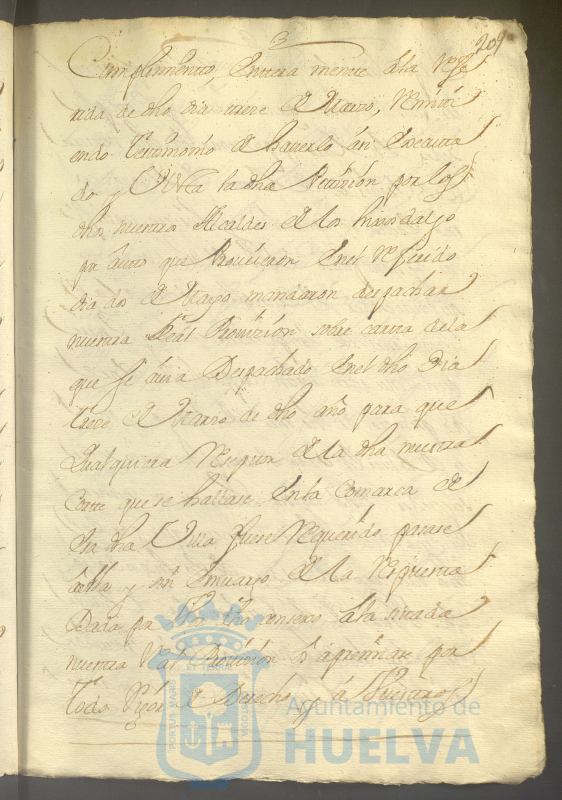 209
Cumplimento, Entera mente ala Refe
rida de dho dia trece de Marzo, Remiti
endo testimonio de haverlo asi Executa
do y Vista la dha Peticion por los
dhos nuestros Alcaldes de los hijosdalgo
por auto que Proveieron En el Referido
dia dos de Mayo mandaron despachar
nuestra Real Provision sobre carta dela
que se avia Despachado En el dho Dia
trece de Marzo de dho año para que
qualquiera Reseptor de la dha nuestra
Corte que se hallase En la Comarca de
Esa dha Villa fuese Requerido pasase
a ella y sin Embargo de la Respuesta
Dada por Ese dho Consexo ala citada
nuestra Real Provision Os apremiase por
todo Rigor de Derecho, y a Vuestros
PORTUS MARIS
ET TERRAE
CUSTODIA
Ayuntamiento de
HUELVA